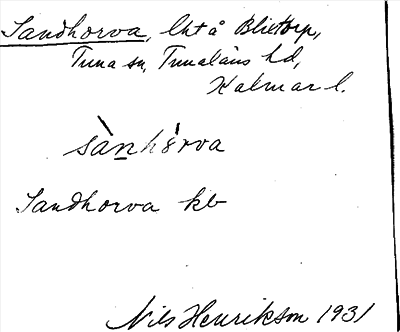 Sandhorva, lht å Blietorp,
Tuna sn, Tunaläns hd,
Kalmar l.
sànhórva
Sandhorva kb
Nils Henrikson 1931